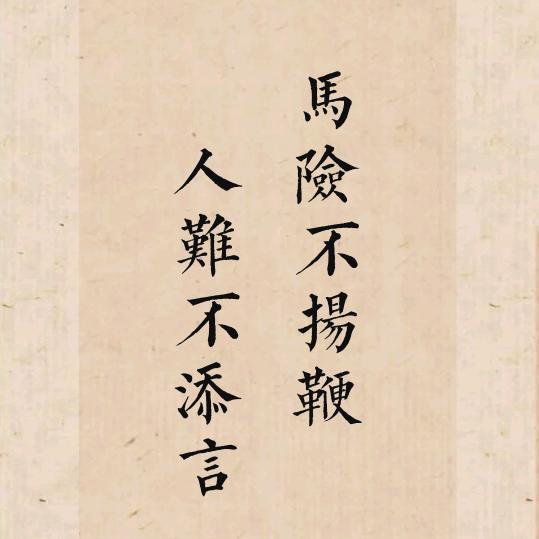 馬險不揚鞭
人難不添言